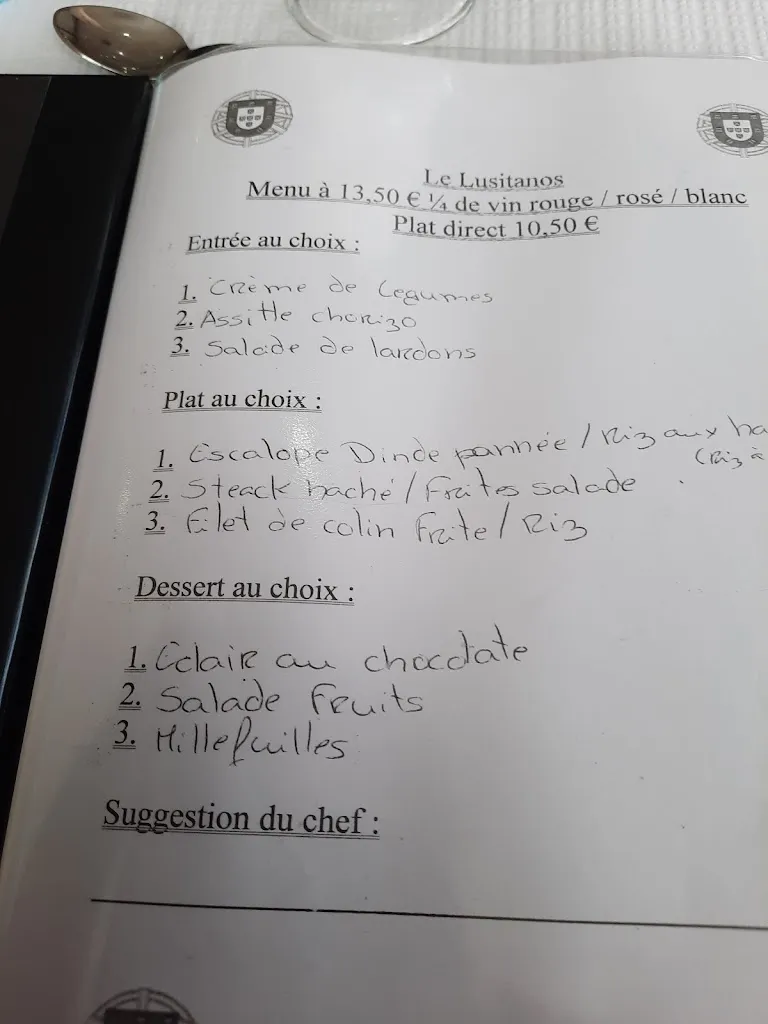 Le Lusitanos
Menu à 13,50 € ¼ de vin rouge / rosé / blanc
Plat direct 10,50 €
Entrée au choix :
1. Crème de Legumes
2. Assitte chorizo
3. Salade de lardons
Plat au choix :
1. Escalope Dinde pannée / Riz aux ha
(Riz a
2. Steack haché / Frites salade
3. Filet de colin frite / Riz
Dessert au choix :
1. Eclair au chocolate
2. Salade Fruits
3. Millefuilles
Suggestion du chef :